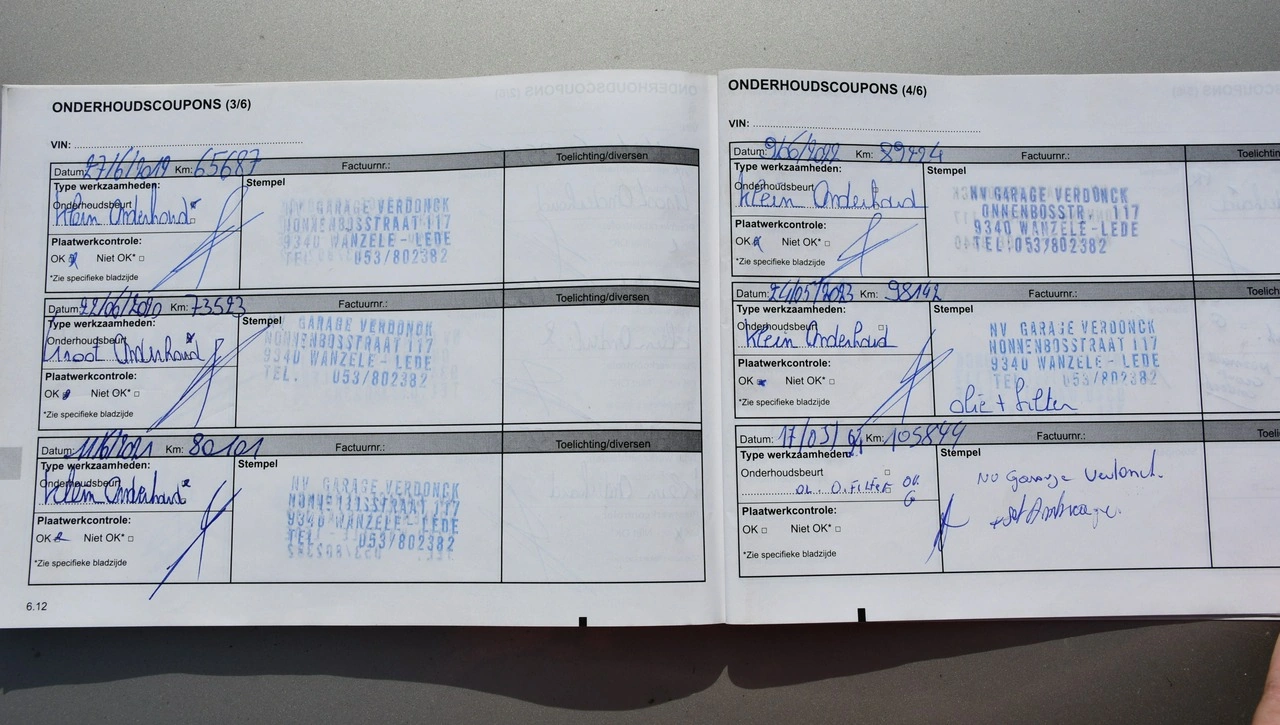 ONDERHOUDSCOUPONS (3/6)
VIN:
Datum: 27/6/2019 Km: 65687 Factuurnr.: Toelichting/diversen
Type werkzaamheden: Stempel
Onderhoudsbeurt
Klein Onderhoud
NV GARAGE VERDONCK
NONNENBOSSTRAAT 117
9340 WANZELE - LEDE
TEL. 053/802382
Plaatwerkcontrole:
OK Niet OK*
*Zie specifieke bladzijde
Datum: 22/06/2020 Km: 73523 Factuurnr.: Toelichting/diversen
Type werkzaamheden: Stempel
Onderhoudsbeurt
Groot Onderhoud
GARAGE VERDONCK
NONNENBOSSTRAAT 117
9340 WANZELE - LEDE
TEL. 053/802382
Plaatwerkcontrole:
OK Niet OK*
*Zie specifieke bladzijde
Datum: 11/6/2021 Km: 80101 Factuurnr.: Toelichting/diversen
Type werkzaamheden: Stempel
Onderhoudsbeurt
Klein Onderhoud
NV. GARAGE VERDONCK
117
9340 WANZELE - LEDE
TEL. 053/802382
Plaatwerkcontrole:
OK Niet OK*
*Zie specifieke bladzijde
6.12
ONDERHOUDSCOUPONS (4/6)
VIN:
Datum: Km: Factuurnr.:
Type werkzaamheden: Stempel
Onderhoudsbeurt
Klein Onderhoud
NV GARAGE VERDONCK
117
9340 WANZELE - LEDE
TEL. 053/802382
Plaatwerkcontrole:
OK Niet OK*
*Zie specifieke bladzijde
Datum: 24/05/2023 Km: 98142 Factuurnr.:
Type werkzaamheden: Stempel
Onderhoudsbeurt
Klein Onderhoud
NV GARAGE VERDONCK
NONNENBOSSTRAAT 117
9340 WANZELE - LEDE
TEL. 053/802382
Olie + filter
Plaatwerkcontrole:
OK Niet OK*
*Zie specifieke bladzijde
Datum: Km: 105844 Factuurnr.:
Type werkzaamheden: Stempel
Onderhoudsbeurt
OL. O.FILTER OK
NV Garage
Plaatwerkcontrole:
OK Niet OK*
*Zie specifieke bladzijde